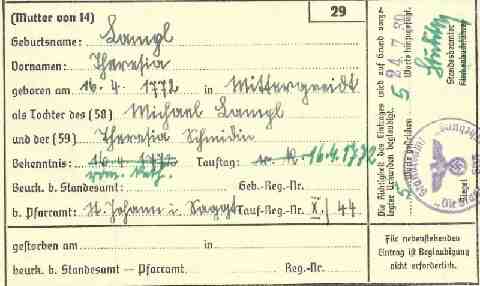 (Mutter von 14)
29
Geburtsname: Langl
Vornamen: Theresia
geboren am 16.4.1772 in Mittergreidt
als Tochter des (58) Michael Langl
und der (59) Theresia Schmidin
Bekenntnis: 16.4.1772 Tauftag: 16.4.1772
röm. kath.
Beurk. b. Standesamt: Geb.-Reg.-Nr.
b. Pfarramt: St. Johann i. Tauf-Reg.-Nr. X / 44
gestorben am in
beurk. b. Standesamt – Pfarramt. Reg.-Nr.
Die Richtigkeit des Eintrages wird auf Grund vorge-
legter Urkunden beglaubigt.
Standesbeamter
Siegel
Für nebenstehenden
Eintrag ist Beglaubigung
nicht erforderlich.